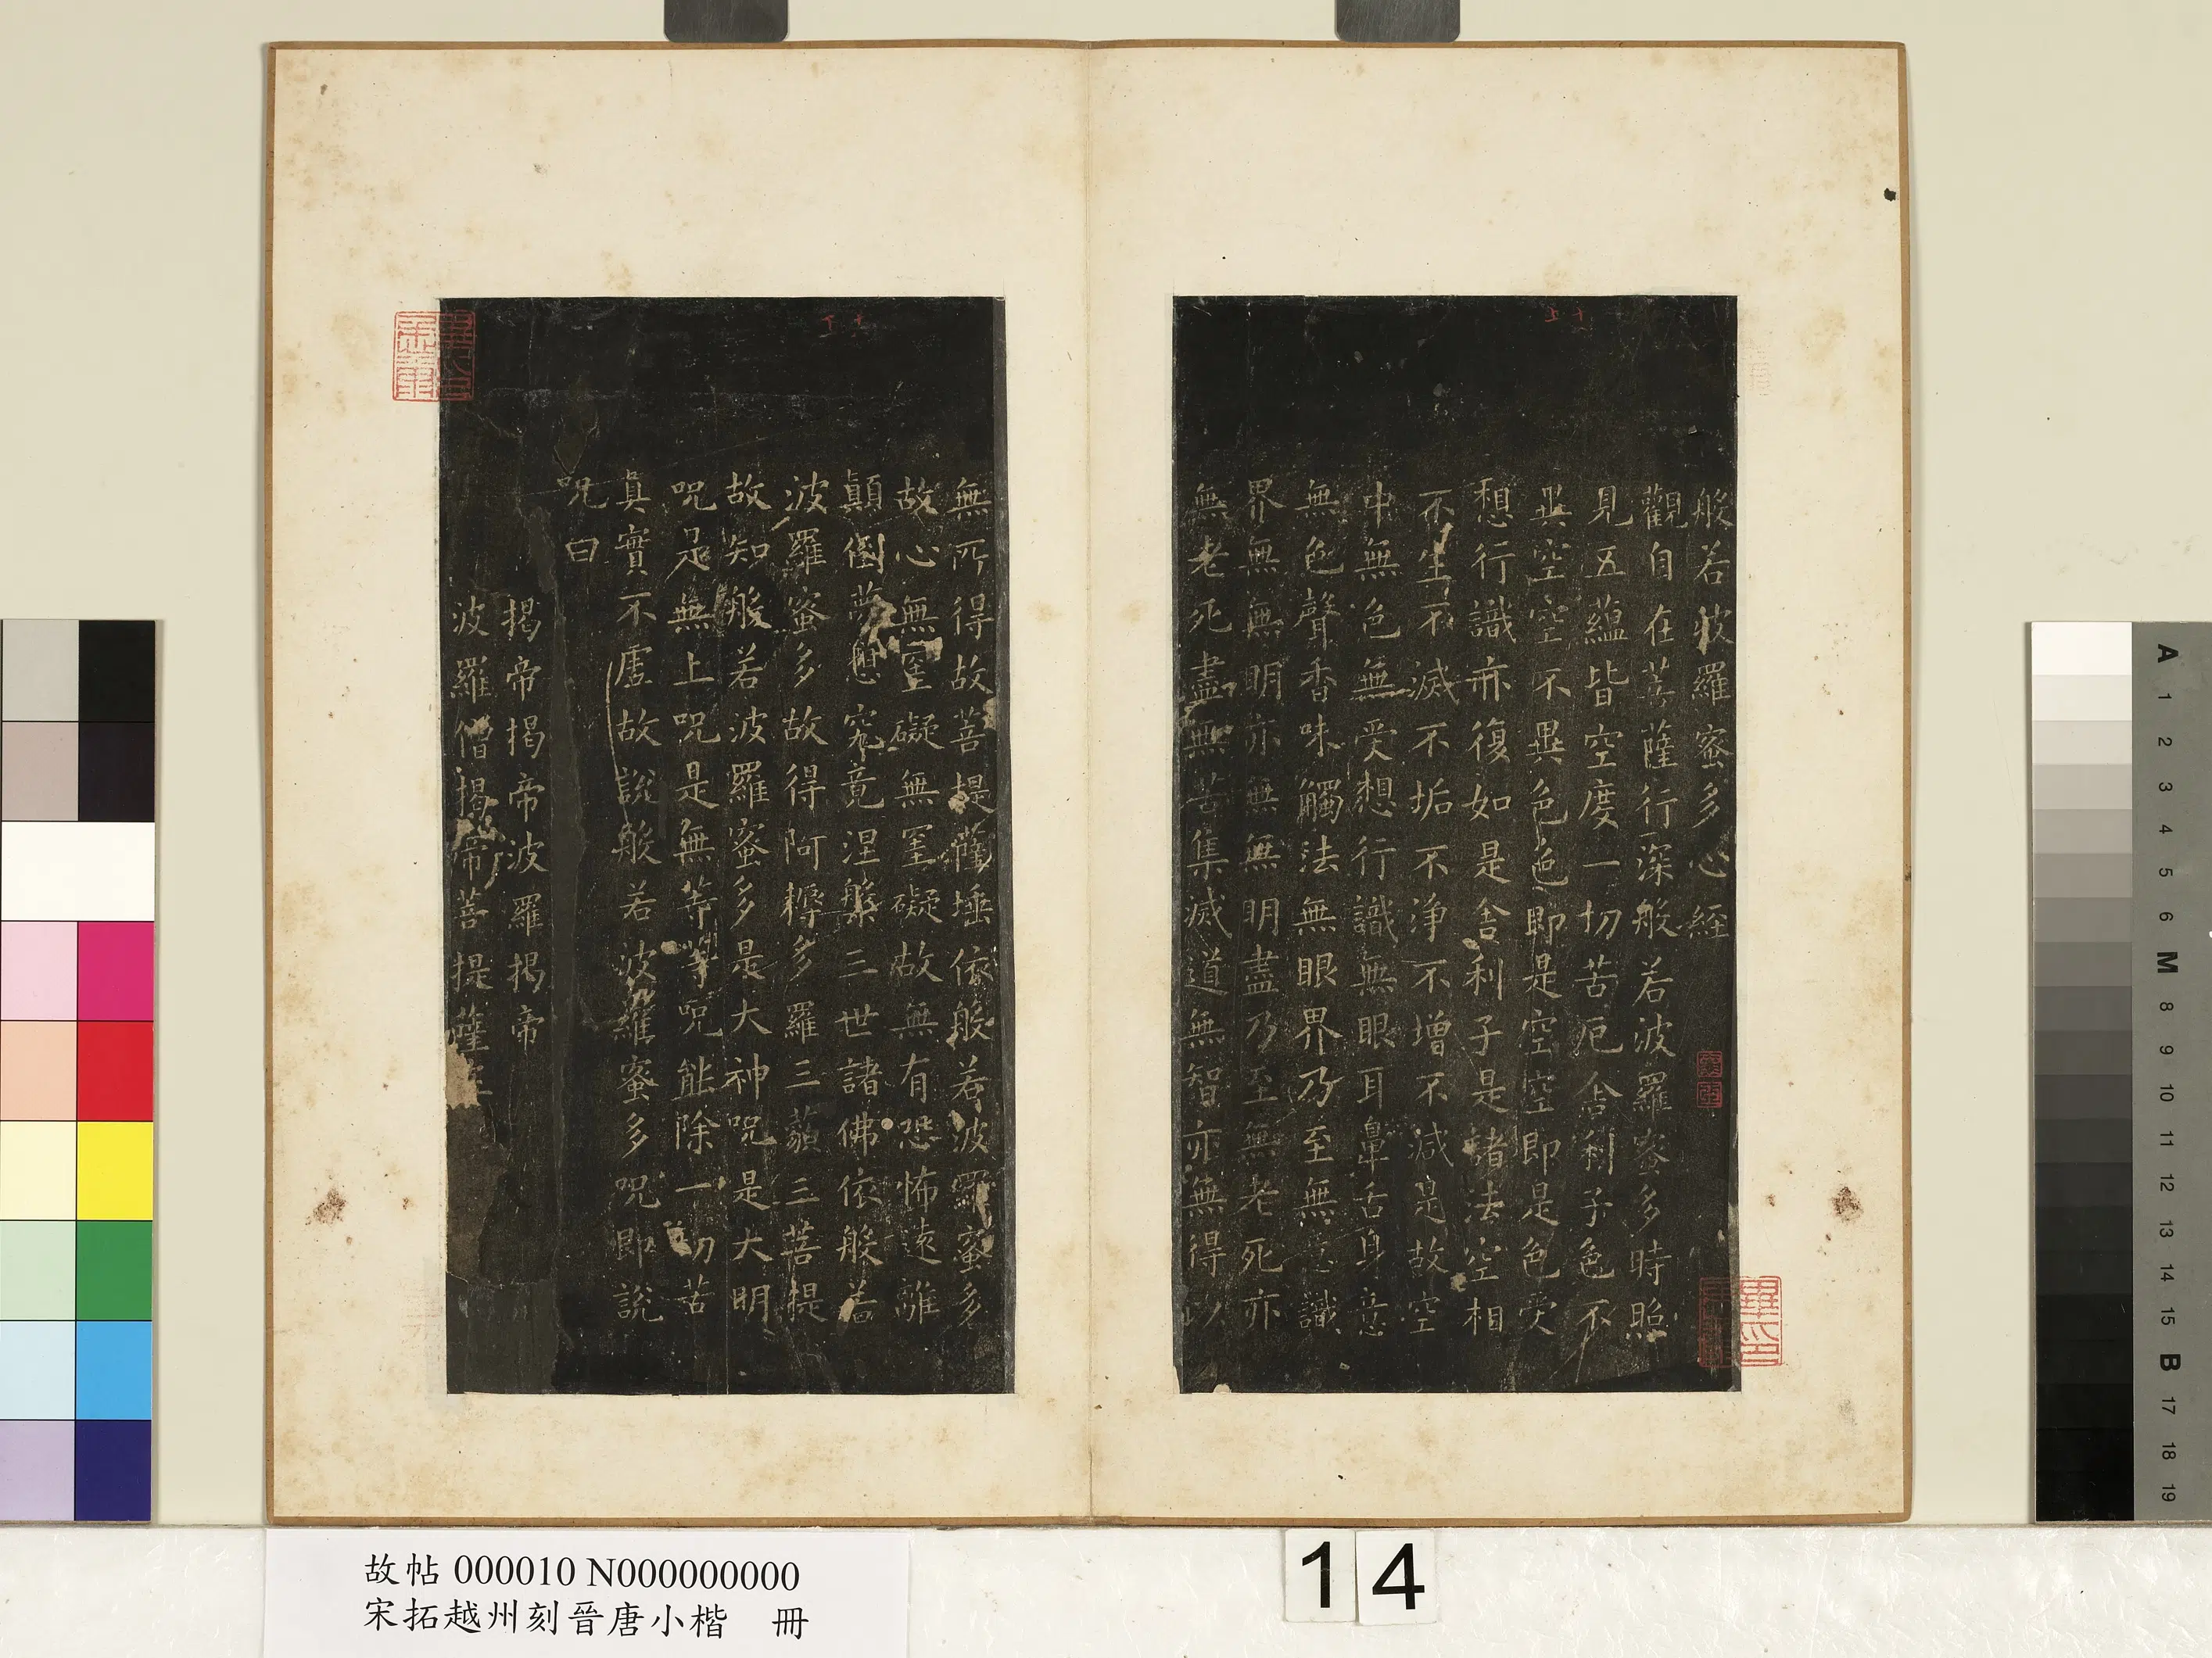 般若波羅蜜多心經
觀自在菩薩行深般若波羅蜜多時照
見五蘊皆空度一切苦厄舍利子色不
異空空不異色色即是空空即是色受
想行識亦復如是舍利子是諸法空相
不生不滅不垢不淨不增不減是故空
中無色無受想行識無眼耳鼻舌身意
無色聲香味觸法無眼界乃至無意識
界無無明亦無無明盡乃至無老死亦
無老死盡無苦集滅道無智亦無得以
無所得故菩提薩埵依般若波羅蜜多
故心無罣礙無罣礙故無有恐怖遠離
顛倒夢想究竟涅槃三世諸佛依般若
波羅蜜多故得阿耨多羅三藐三菩提
故知般若波羅蜜多是大神咒是大明
咒是無上咒是無等等咒能除一切苦
真實不虛故說般若波羅蜜多咒即說
咒曰
揭帝揭帝波羅揭帝
波羅僧揭帝菩提薩
故帖 000010 N000000000
宋拓越州刻晉唐小楷 冊
14
A
1
2
3
4
5
6
M
8
9
10
11
12
13
14
15
B
17
18
19